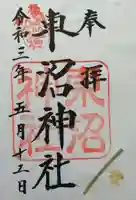 奉拝
東沼神社
東沼神社
令和三年五月十二日